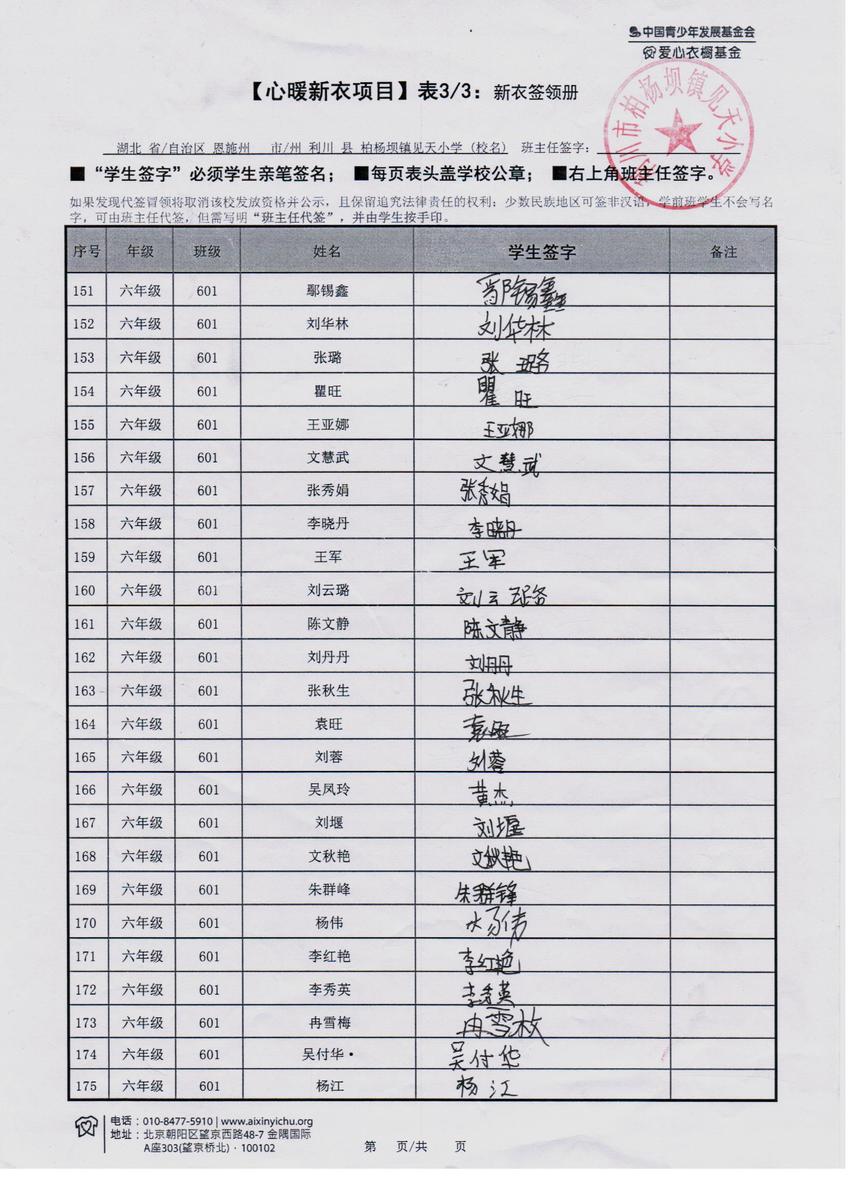 中国青少年发展基金会
爱心衣橱基金
【心暖新衣项目】表3/3：新衣签领册
利川市柏杨坝镇见天小学
湖北 省/自治区 恩施州 市/州 利川 县 柏杨坝镇见天小学 (校名) 班主任签字：
■ “学生签字”必须学生亲笔签名； ■每页表头盖学校公章； ■右上角班主任签字。
如果发现代签冒领将取消该校发放资格并公示，且保留追究法律责任的权利；少数民族地区可签非汉语，学前班学生不会写名
字，可由班主任代签，但需写明“班主任代签”，并由学生按手印。
序号 年级 班级 姓名 学生签字 备注
151 六年级 601 鄢锡鑫 鄢锡鑫
152 六年级 601 刘华林 刘华林
153 六年级 601 张璐 张璐
154 六年级 601 瞿旺 瞿旺
155 六年级 601 王亚娜 王亚娜
156 六年级 601 文慧武 文慧武
157 六年级 601 张秀娟 张秀娟
158 六年级 601 李晓丹 李晓丹
159 六年级 601 王军 王军
160 六年级 601 刘云璐 刘云璐
161 六年级 601 陈文静 陈文静
162 六年级 601 刘丹丹 刘丹丹
163 六年级 601 张秋生 张秋生
164 六年级 601 袁旺 袁旺
165 六年级 601 刘蓉 刘蓉
166 六年级 601 吴凤玲 黄杰
167 六年级 601 刘堰 刘堰
168 六年级 601 文秋艳 文秋艳
169 六年级 601 朱群峰 朱群锋
170 六年级 601 杨伟 杨伟
171 六年级 601 李红艳 李红艳
172 六年级 601 李秀英 李秀英
173 六年级 601 冉雪梅 冉雪枚
174 六年级 601 吴付华 吴付华
175 六年级 601 杨江 杨江
电话：010-8477-5910 | www.aixinyichu.org
地址：北京朝阳区望京西路48-7 金隅国际
A座303(望京桥北)·100102
第 页/共 页